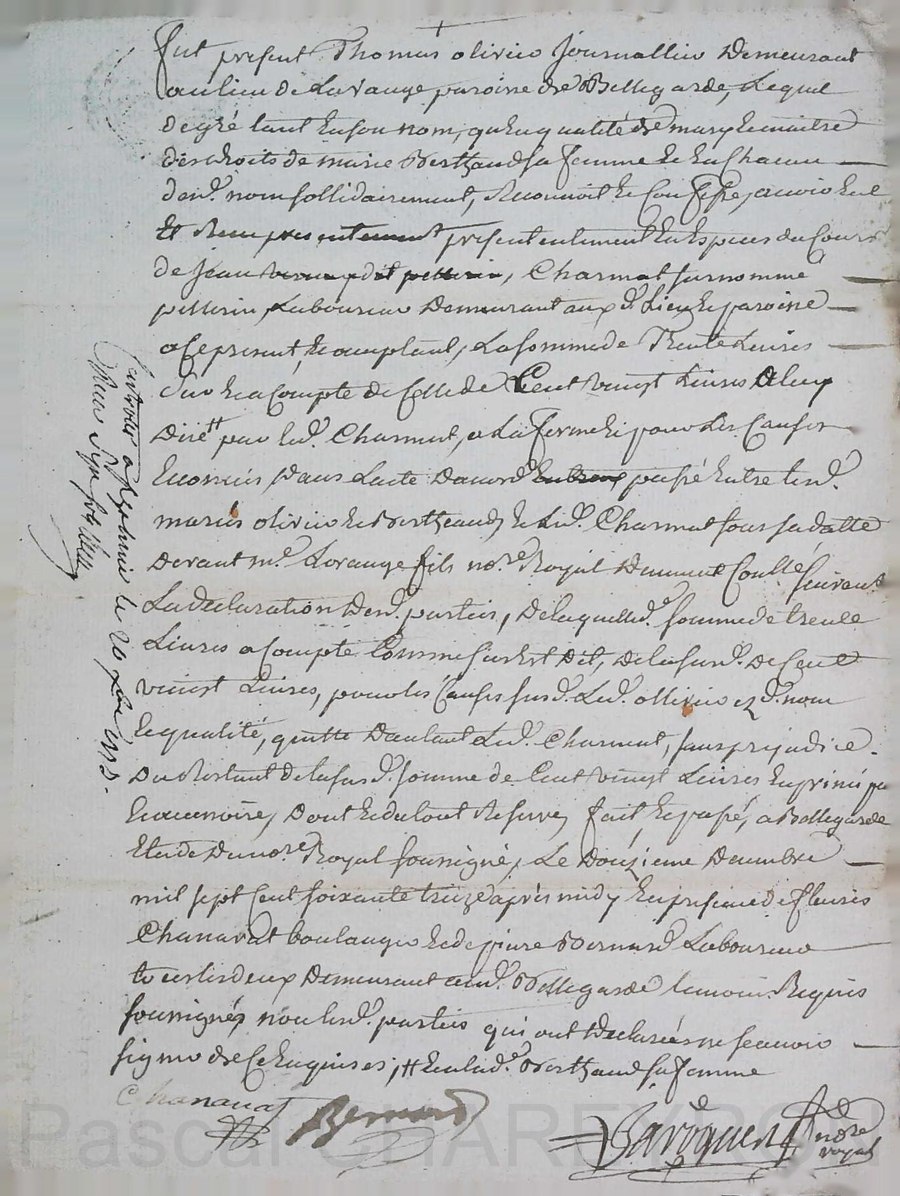 fut present Thomas olivier Journallier Demeurant
au lieu de Lavauge paroisse de Bellegarde, Lequel
de gré tant En son nom, qu'en qualité de mary Le maitre
des droits de marie Bertheaud sa femme Et En Chacun
desd. noms sollidairement, Reconnoit Et Confesse, avoir Eu
Et Receu presentement presententement En Especes du Cours
de Jean dit pellerin, Charmat surnommé
pellerin Laboureur Demeurant aux d. Lieu Et paroisse
a ce present, Et acceptant, La somme de Trente Livres
Sur Et a Compte de Celle de Cent vingt Livres
par led. Charmat, a La femme Et pour Les Causes
Enoncées Dans L'acte D'acord passé Entre lesd.
mariés olivier Et Bertheaud, Et Led. Charmat sous sa datte
Devant me. Lorange fils nore. Royal Duement Conllé suivant
La declaration Desd. parties, De laquelle d. somme de trente
Livres a Compte Comme sus Est Dit, de la susd. de Cent
vingt Livres, pour les Causes susd. Led. ollivier ez d. nom
Et qualité, quitte D'autant Led. Charmat, sans prejudice
Du Restant de la susd. somme de Cent vingt Livres En principal
Et accessoire, Dont Et du tout Reserve, fait Et passé, a Bellegarde
Etude Du nore. Royal soussigné, Le Douzieme Decembre
mil sept Cent soixante treize après midy En presence de fleuries
Chanavat boulanger Et de pierre Bernard Laboureur
tous les deux Demeurant aud. Bellegarde temoins Requis
soussignés, non lesd. parties qui ont declarées ne scavoir
signer de Ce Enquises; # Et a lad. Bertheaud sa femme
Chanavat
Bernard
Baroquen
nore
royal
Controlé a le 20 Xbre 1773.
Pascal CHAREYRON